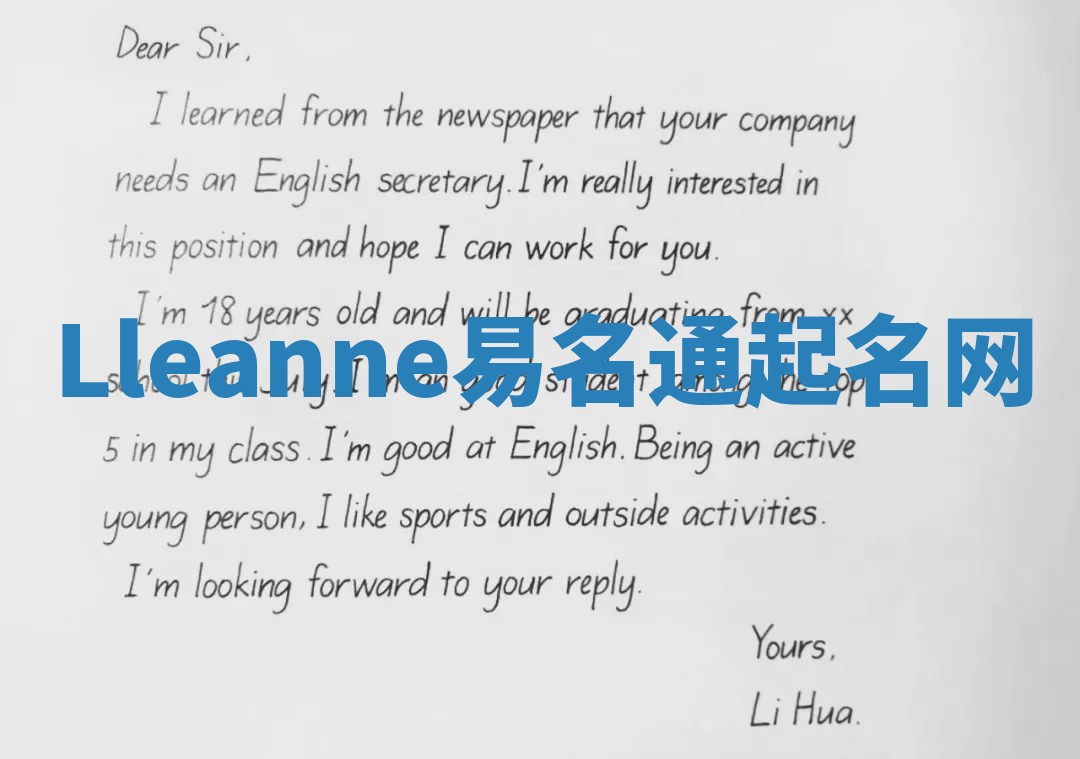 Dear Sir,
I learned from the newspaper that your company
needs an English secretary. I'm really interested in
this position and hope I can work for you.
I'm 18 years old and will be graduating from xx
Lleanne易名通起名网
school this July. I'm an good student, among the top
5 in my class. I'm good at English. Being an active
young person, I like sports and outside activities.
I'm looking forward to your reply.
Yours,
Li Hua.